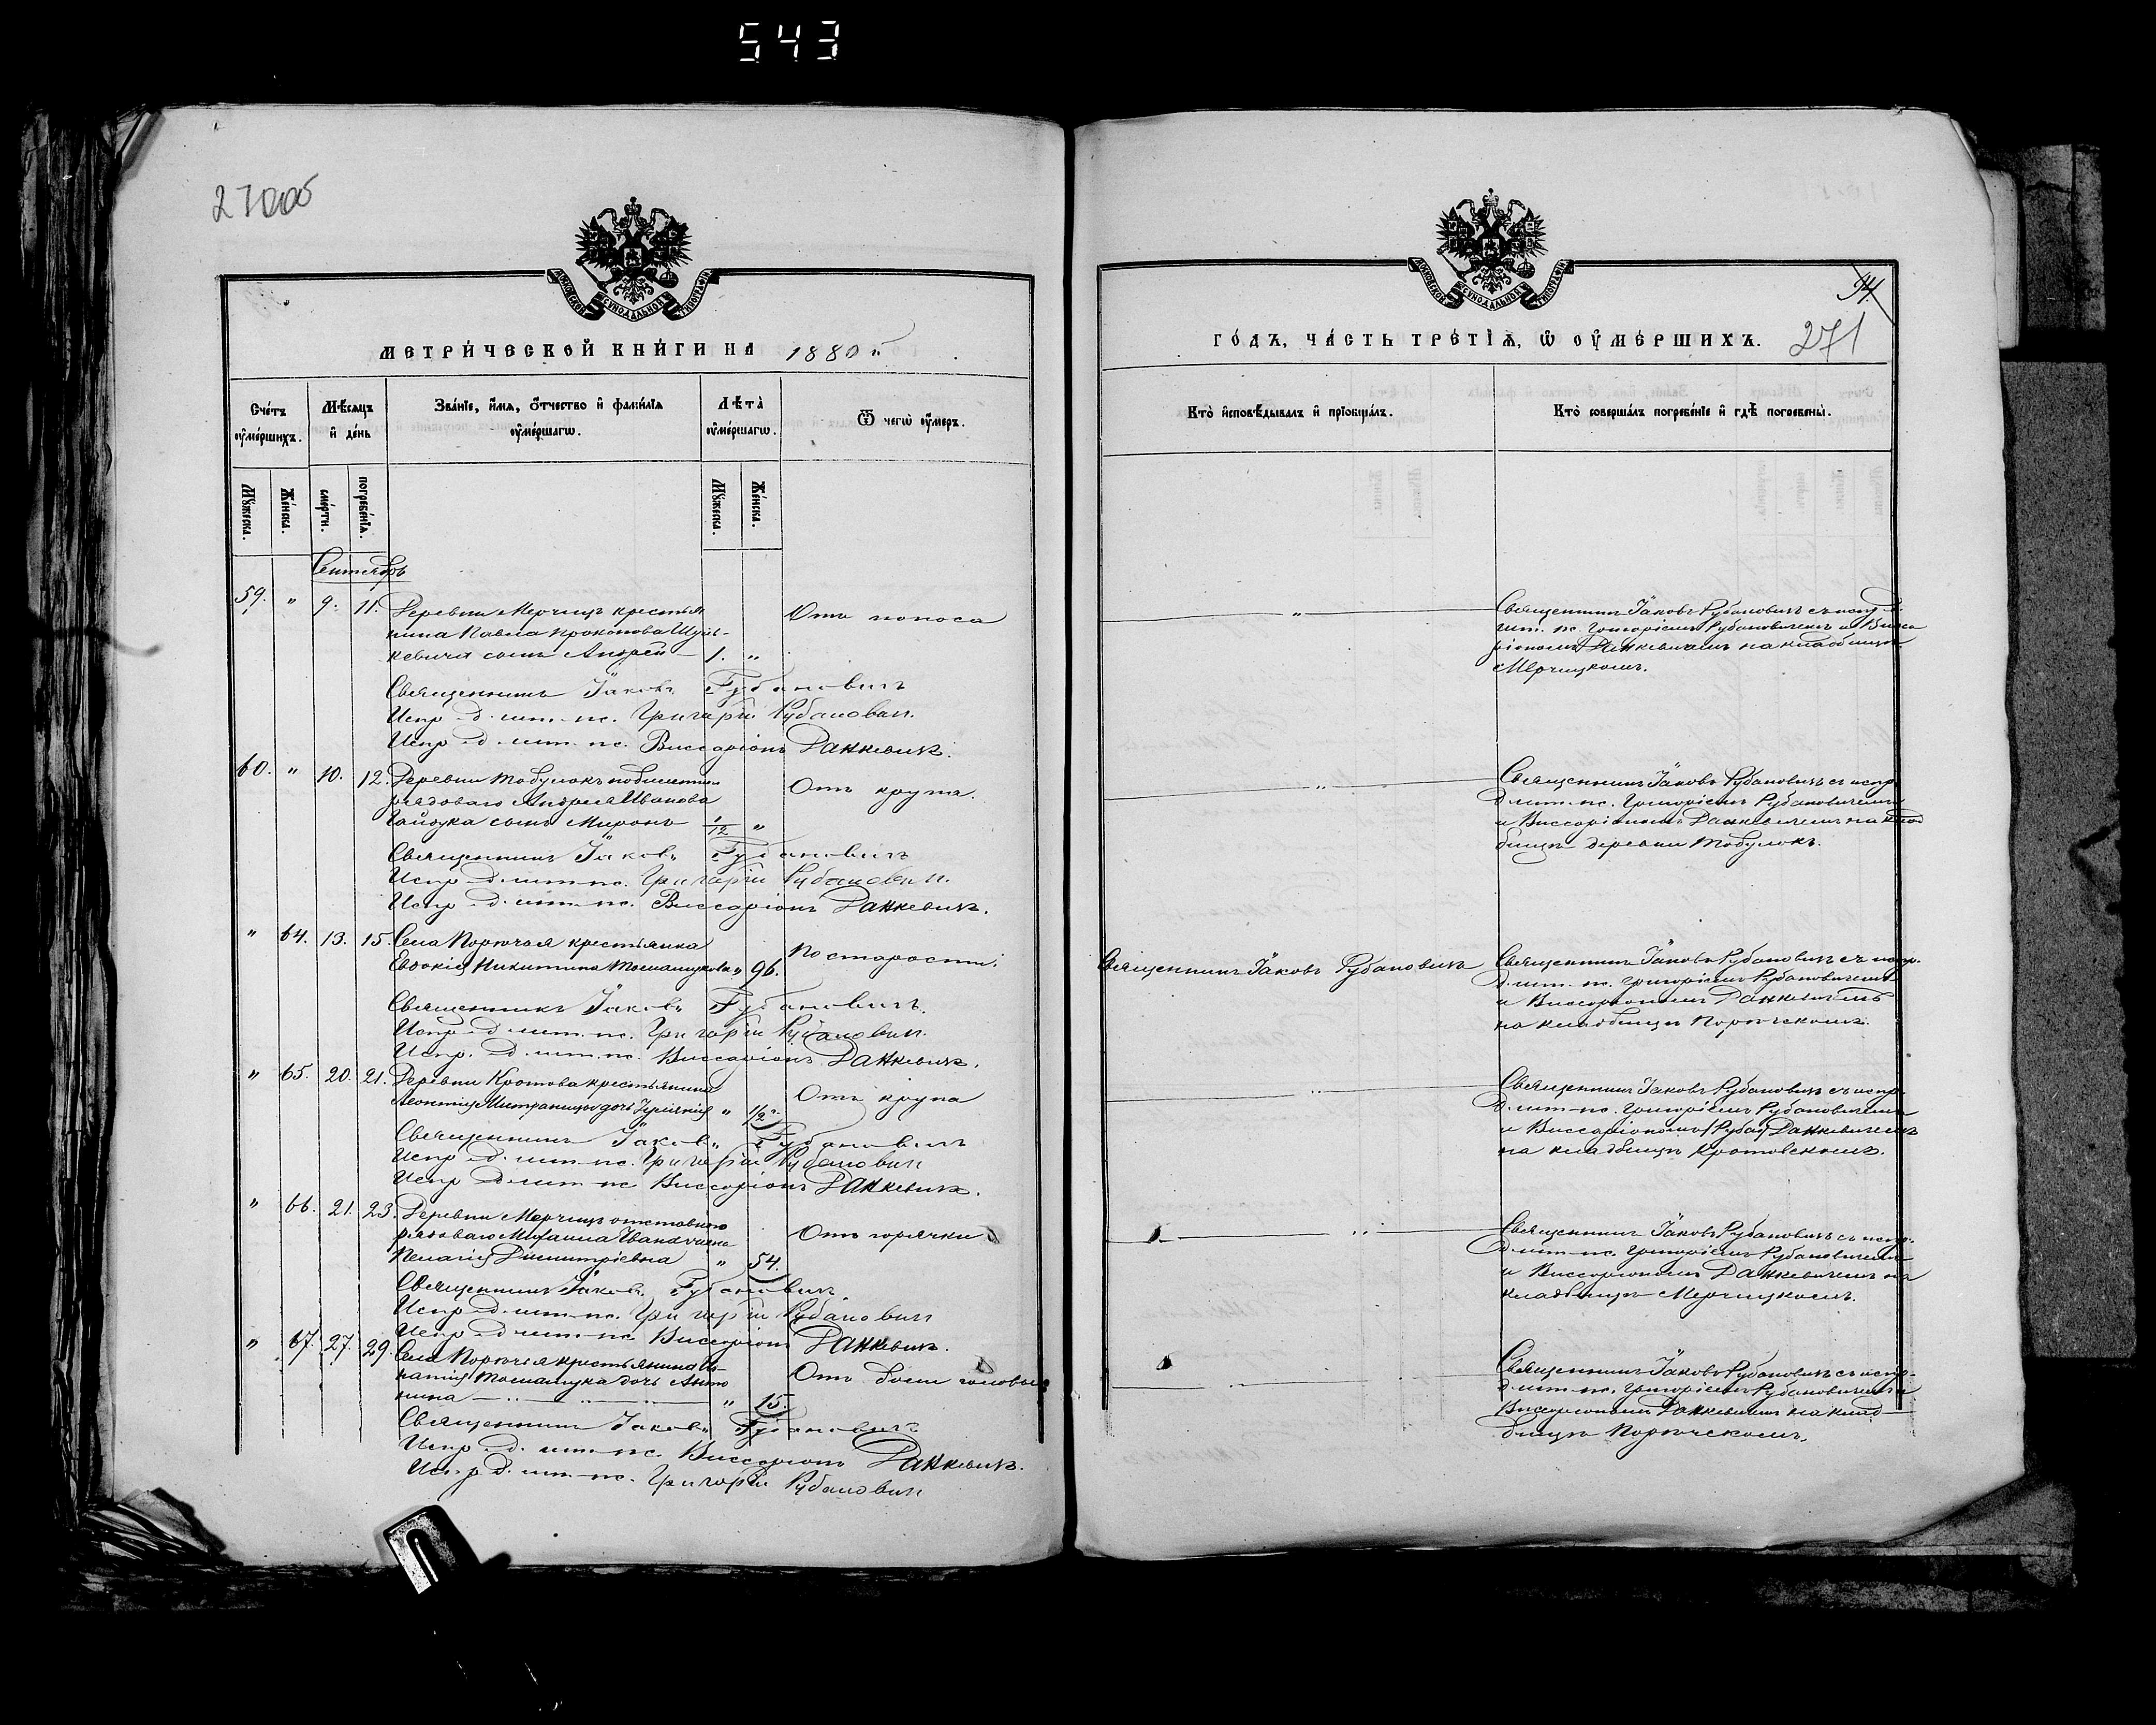 543
270об
МОСКОВСКОЙ СѴНОДАЛЬНОЙ ТИПОГРАФІИ
МЕТРИ́ЧЕСКОЙ КНИ́ГИ НА 1880 "
Сче́тъ ᲂу҆ме́ршихъ.
Мѣ́сяцъ и҆ де́нь
Зва́нїе, и҆́мя, ѻ҆́тчество и҆ фами́лїя ᲂу҆ме́ршагѡ.
Лѣ́та̀ ᲂу҆ме́ршагѡ.
Ѿ чегѡ̀ ᲂу҆́меръ.
Мꙋ́жеска.
Же́нска.
сме́рти.
погребе́нїѧ.
Мꙋ́жеска.
Же́нска.
Сентябрь
59. " 9. 11. Деревни Мерчицъ крестья Отъ поноса
нина Павла Прокопова
кевича сынъ Андрей 1. "
Священникъ Іаковъ Рубановичъ
Испр. д. пс. Григорій Рубанович.
Испр. д. пс. Виссаріонъ Данкевичъ.
60. " 10. 12. Деревни Тобулокъ Отъ крупа.
рядоваго Андрея Иванова
Гайдука сынъ Миронъ 1/12 "
Священникъ Іаковъ Рубановичъ
Испр. д. пс. Григорій Рубанович.
Испр. д. пс. Виссаріонъ Данкевичъ.
" 64. 13. 15. Села Порѣчья крестьянка По старости.
Евдокія Никитина " 96.
Священникъ Іаковъ Рубановичъ.
Испр. д. пс. Григорій Рубанович.
Испр. д. пс. Виссаріонъ Данкевичъ.
" 65. 20. 21. Деревни Кротова крестьянина Отъ крупа
Леонтія дочь " 1/2
Священникъ Іаковъ Рубановичъ
Испр. д. пс. Григорій Рубанович
Испр. д. пс. Виссаріонъ Данкевичъ.
" 66. 21. 23. Деревни Мерчицъ отставнаго
рядоваго Михаила Отъ горячки
Пелагія Димитріевна " 54.
Священникъ Іаковъ Рубановичъ
Испр. д. пс. Григорій Рубанович
Испр. д. пс. Виссаріонъ Данкевичъ.
" 67. 27. 29. Села Порѣчья крестьянина Иг-
натія Томашука дочь Анто Отъ боли головы
нина " 15.
Священникъ Іаковъ Рубановичъ
Испр. д. пс. Виссаріонъ Данкевичъ.
Испр. д. пс. Григорій Рубанович
МОСКОВСКОЙ СѴНОДАЛЬНОЙ ТИПОГРАФІИ
94
ГО́ДЪ, ЧА́СТЬ ТРЕ́ТІѦ, Ѡ҆ ОУ҆МЕ́РШИХЪ. 271
Кто̀ и҆сповѣ́дывалъ и҆ прїобща́лъ.
Кто̀ соверша́лъ погребе́нїе и҆ гдѣ̀ погребены̀.
" Священникъ Іаковъ Рубановичъ съ испр. д.
пс. Григоріемъ Рубановичемъ и Висса
ріономъ Данкевичемъ на кладбищѣ
Мерчицкомъ.
" Священникъ Іаковъ Рубановичъ съ испр.
д. пс. Григоріемъ Рубановичемъ
и Виссаріономъ Данкевичемъ на клад
бищѣ деревни Тобулокъ.
Священникъ Іаковъ Рубановичъ Священникъ Іаковъ Рубановичъ съ испр.
д. пс. Григоріемъ Рубановичемъ
и Виссаріономъ Данкевичемъ
на кладбищѣ Порѣчскомъ.
" Священникъ Іаковъ Рубановичъ съ испр.
д. пс. Григоріемъ Рубановичемъ
и Виссаріономъ (Рубан) Данкевичемъ
на кладбищѣ Кротовскомъ.
" Священникъ Іаковъ Рубановичъ съ испр.
д. пс. Григоріемъ Рубановичемъ
и Виссаріономъ Данкевичемъ на
кладбищѣ Мерчицкомъ.
" Священникъ Іаковъ Рубановичъ съ испр.
д. пс. Григоріемъ Рубановичемъ и
Виссаріономъ Данкевичемъ на клад-
бищѣ Порѣчскомъ.